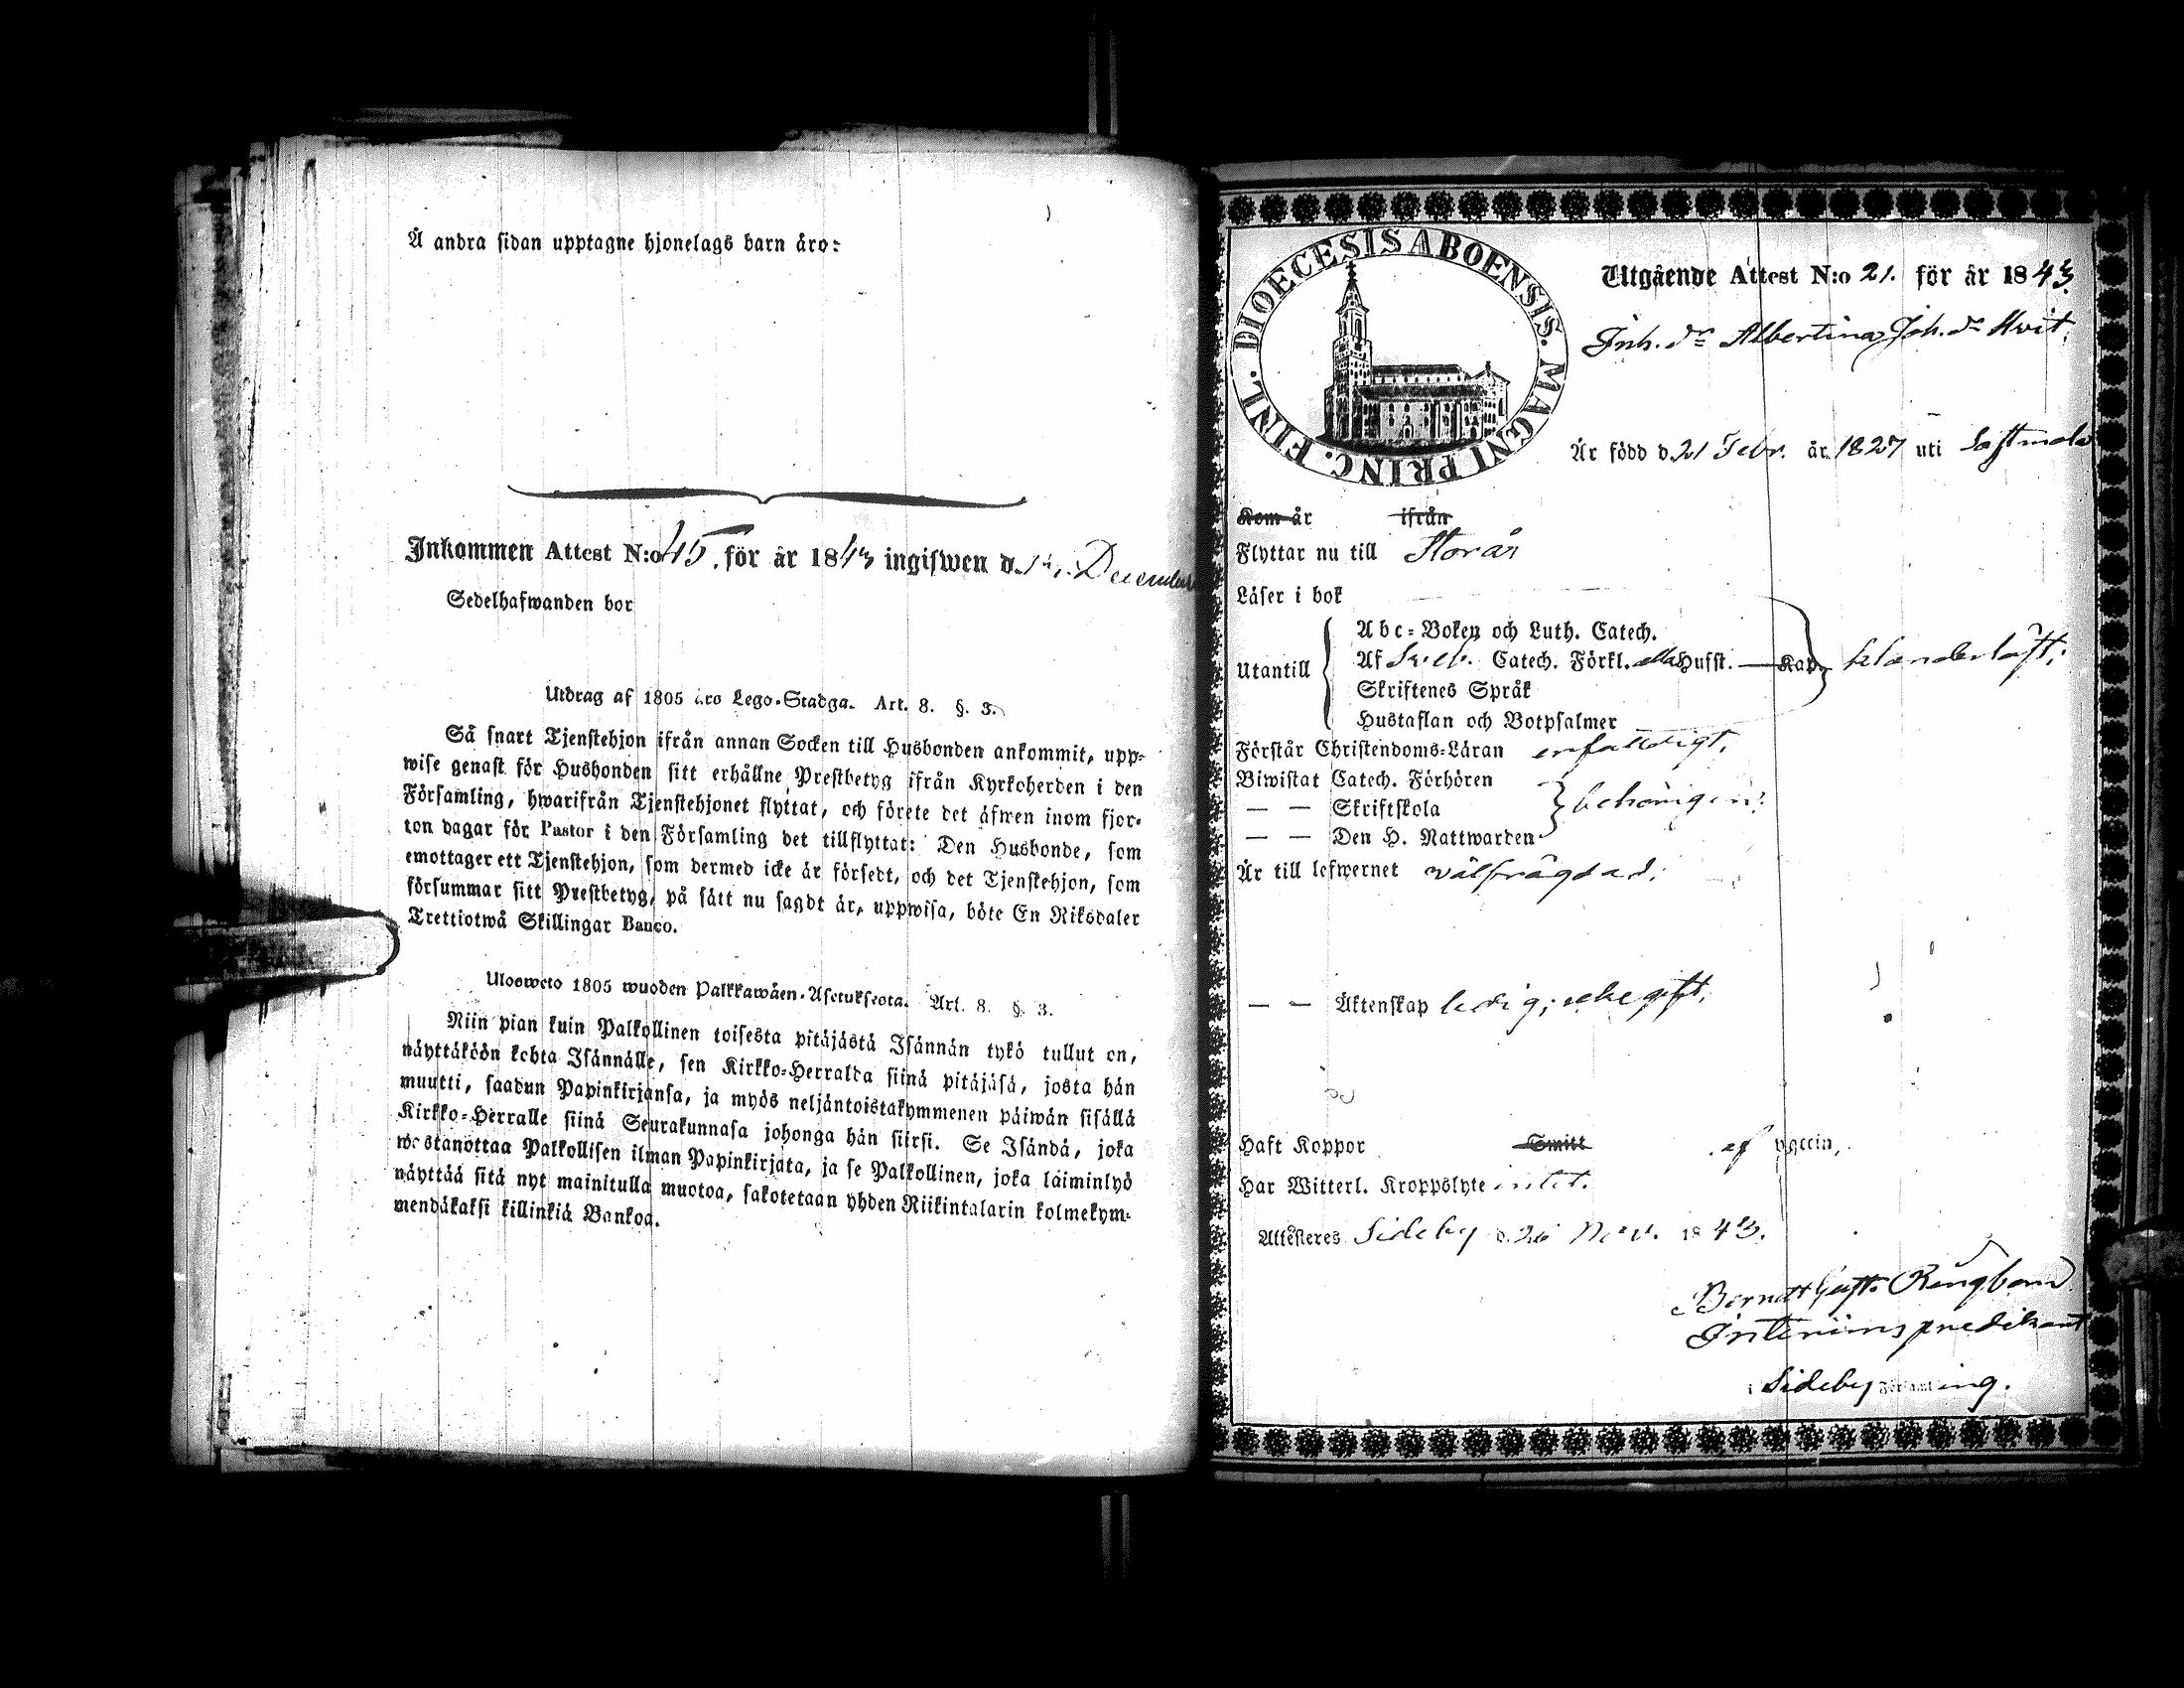 Å andra sidan upptagne hjonelags barn äro:
Inkommen Attest N:o 45. för år 1843 ingifwen d. December
Sedelhafwanden bor
Utdrag af 1805 års Lego-Stadga. Art. 8. §. 3.
Så snart Tjenstehjon ifrån annan Socken till Husbonden ankommit, upp-
wise genast för Husbonden sitt erhållne Prestbetyg ifrån Kyrkoherden i den
Församling, hwarifrån Tjenstehjonet flyttat, och förete det äfwen inom fjor-
ton dagar för Pastor i den Församling det tillflyttat: Den Husbonde, som
emottager ett Tjenstehjon, som dermed icke är försedt, och det Tjenstehjon, som
försummar sitt Prestbetyg, på sätt nu sagdt är, uppwisa, böte En Riksdaler
Trettiotwå Skillingar Banco.
Uloswcto 1805 wuoden Palkkawäen-Asetuksesta. Art. 8. §. 3.
Niin pian kuin Palkollinen toisesta pitäjästä Isännän tykö tullut on,
näyttäköön kohta Isännälle, sen Kirkko-Herralda siinä pitäjäsä, josta hän
muutti, saadun Papinkirjansa, ja myös neljäntoistakymmenen päiwän sisällä
Kirkko-Herralle siinä Seurakunnasa johonga hän siirsi. Se Isändä, joka
wastanottaa Palkollisen ilman Papinkirjata, ja se Palkollinen, joka laiminlyö
näyttää sitä nyt mainitulla muotoa, sakotetaan yhden Riikintalarin kolmekym-
mendäkaksi killinkiä Bankoa.
DIOECESIS ABOENSIS. MAGNI PRINC. FINL.
Utgående Attest N:o 21. för år 1843
Inh. dr Albertina Joh. dr Hvit,
Är född d. 21 Febr. år 1827 uti Lastmola
Kom år ifrån
Flyttar nu till Storån
Läser i bok
Utantill
Abc-Boken och Luth. Catech.
Af Sveb. Catech. Förkl. Husst. — Kap.
Skriftenes Språk
Hustaflan och Botpsalmer
klanderlöst;
Förstår Christendoms-Läran enfaldigt,
Biwistat Catech. Förhören
— — Skriftskola
— — Den H. Nattwarden
behörigen:
Är till lefwernet välfrägdad;
— — Äktenskap ledig; icke gift.
Haft Koppor Smitt af vaccin,
Har Witterl. Kroppslyte intet.
Attesteres Sideby d. 26 Nov. 1843.
Berndt Gust. Ringbom
Interimspredikant
i Sideby Församling.